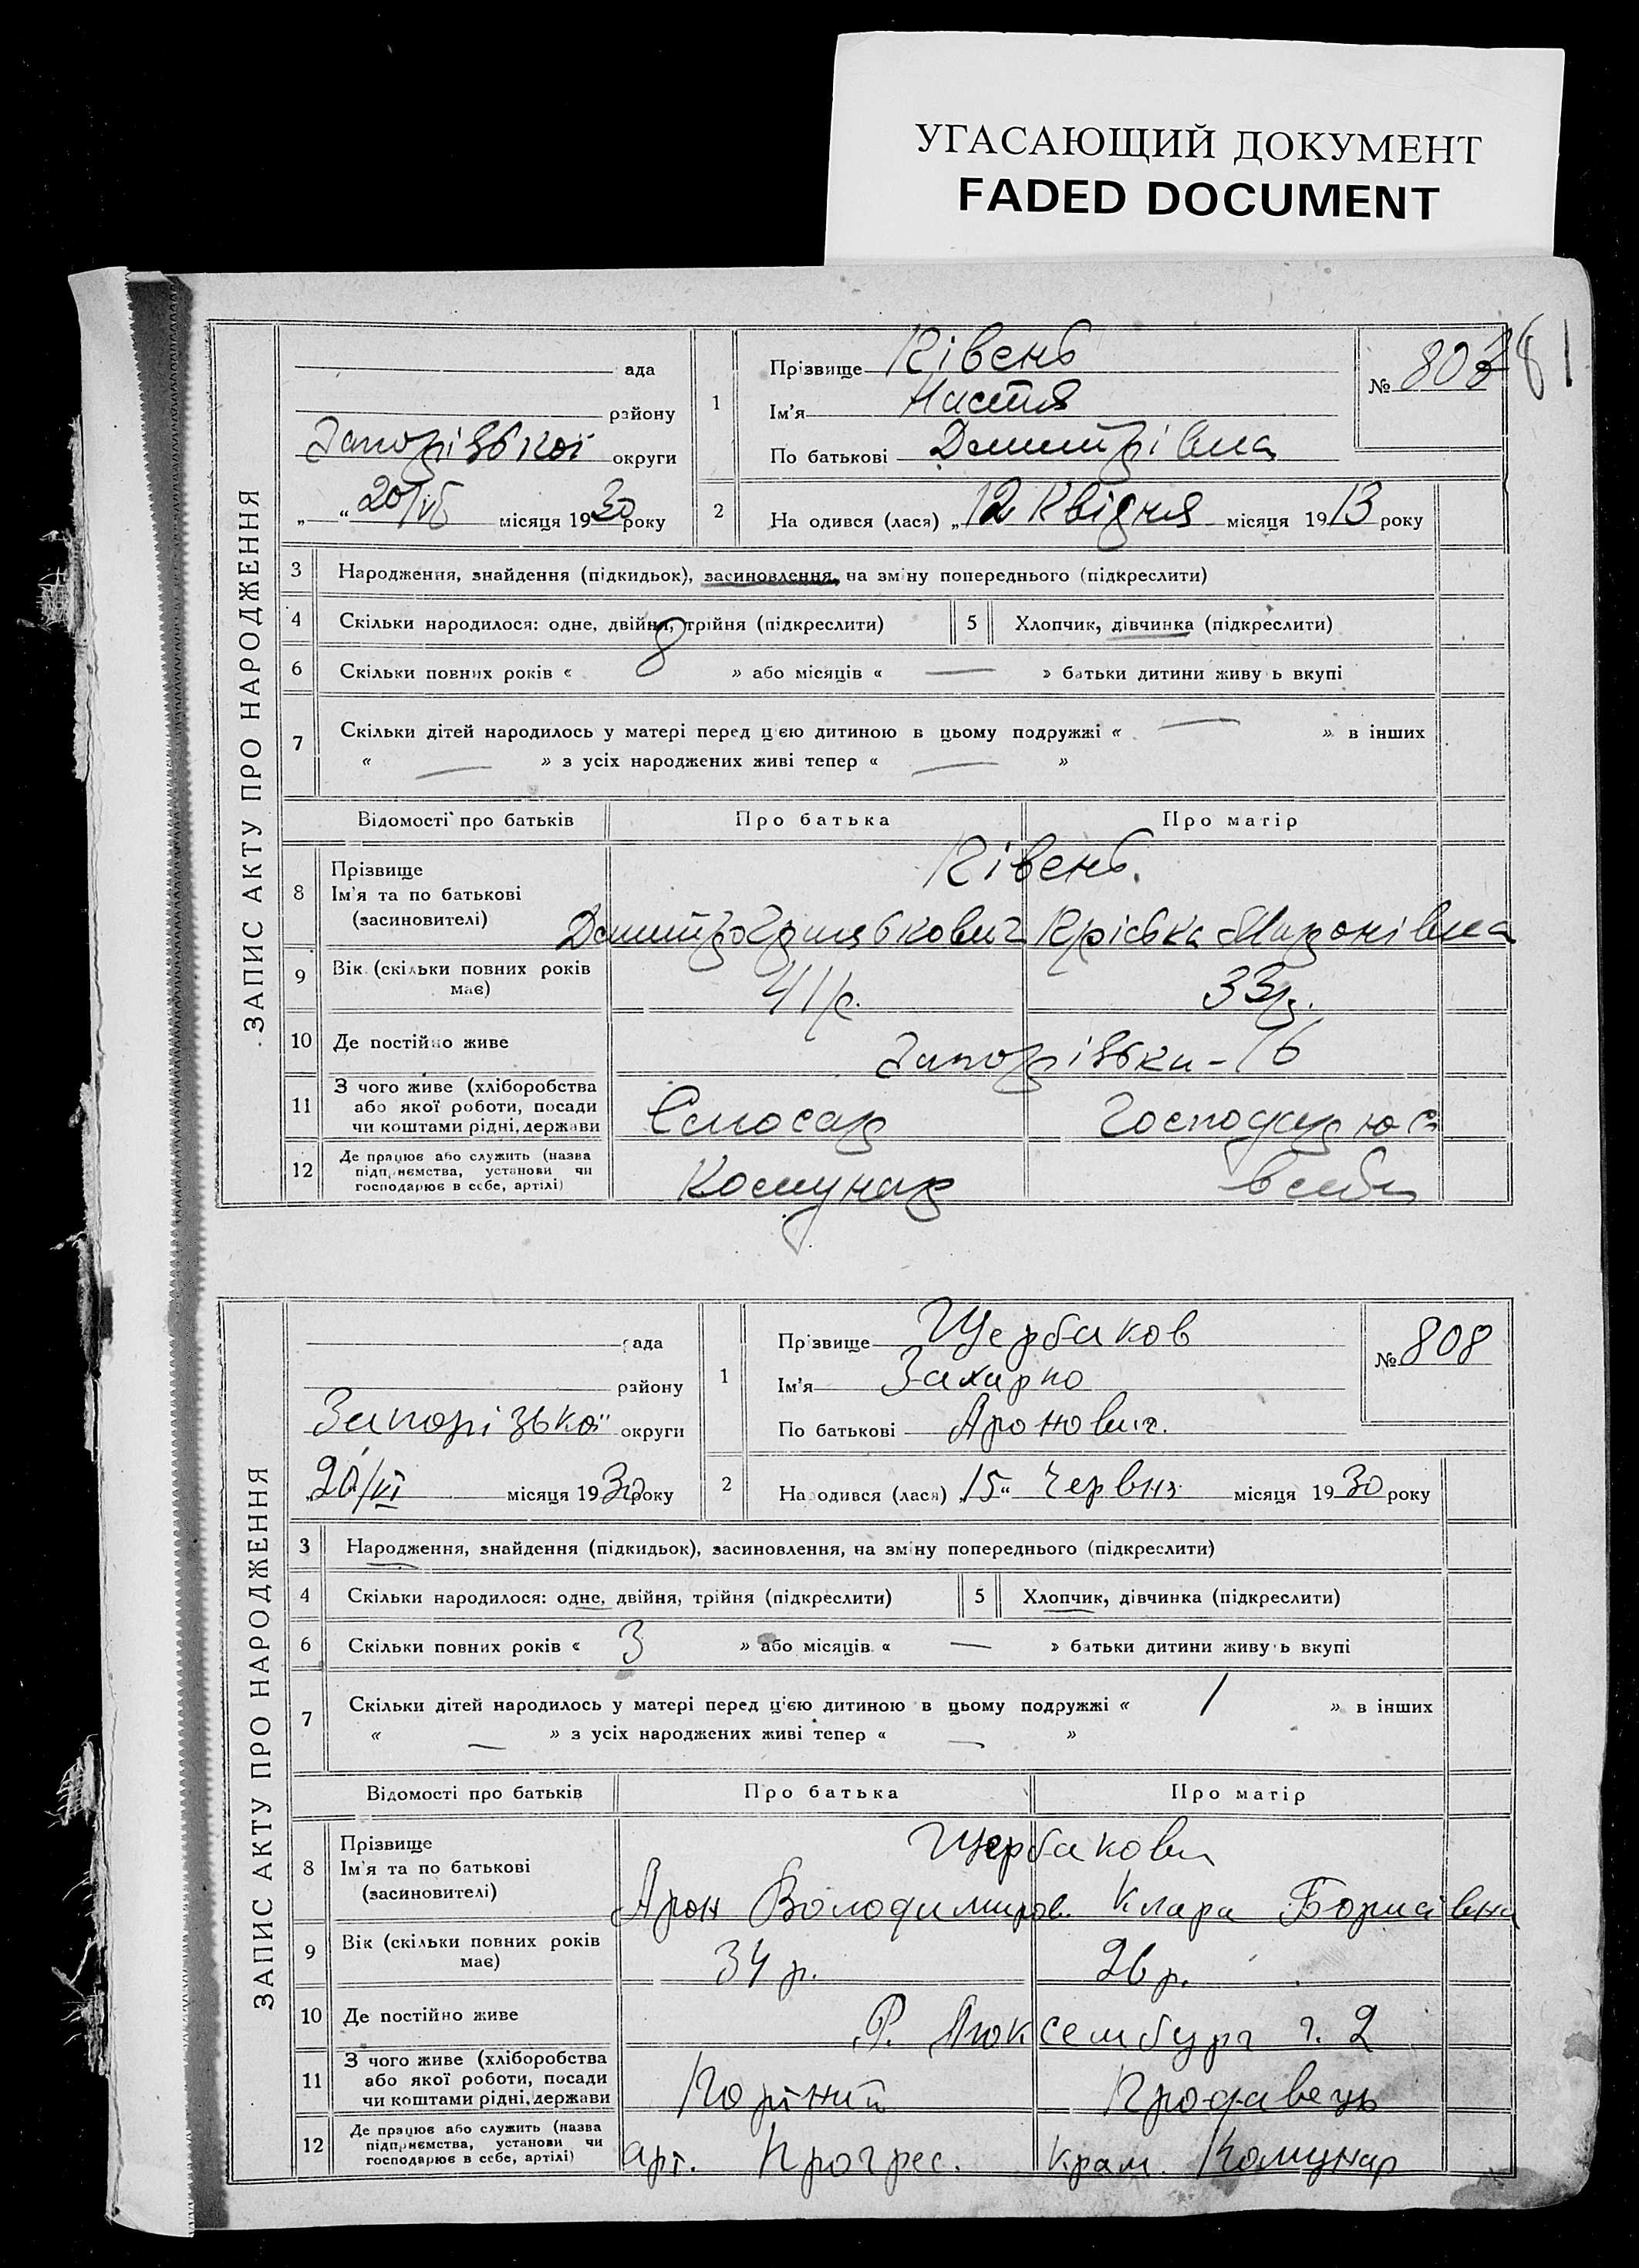 УГАСАЮЩИЙ ДОКУМЕНТ
FADED DOCUMENT
81
ЗАПИС АКТУ ПРО НАРОДЖЕННЯ
ада
району
Запорізької округи
20/VI місяця 1930 року
1 Прізвище Півень
Ім'я Настя
По батькові Дмитрівна
№ 807
2 На одився (лася) „12 Квідня місяця 1913 року
3 Народження, знайдення (підкидьок), засиновлення, на зміну попереднього (підкреслити)
4 Скільки народилося: одне, двійня, трійня (підкреслити) 5 Хлопчик, дівчинка (підкреслити)
6 Скільки повних років « 8 » або місяців « — » батьки дитини живу ь вкупі
7 Скільки дітей народилось у матері перед цією дитиною в цьому подружжі « — » в інших
« — » з усіх народжених живі тепер « — »
Відомості про батьків Про батька Про матір
8 Прізвище
Ім'я та по батькові
(засиновителі)
Півень.
Дмитро Грицькович Пріська Миронівна
9 Вік (скільки повних років має) 41 р. 33 р.
10 Де постійно живе Запорізька - 76
11 З чого живе (хліборобства
або якої роботи, посади
чи коштами рідні, держави
Слюсар Господарює
12 Де працює або служить (назва
підприємства, установи чи
господарює в себе, артілі)
Комунар в себе
ЗАПИС АКТУ ПРО НАРОДЖЕННЯ
ада
району
Запорізької округи
„20/VI місяця 1930 року
1 Прізвище Щербаков
Ім'я Захарко
По батькові Аронович.
№ 808
2 На одився (лася) „15“ Червня місяця 1930 року
3 Народження, знайдення (підкидьок), засиновлення, на зміну попереднього (підкреслити)
4 Скільки народилося: одне, двійня, трійня (підкреслити) 5 Хлопчик, дівчинка (підкреслити)
6 Скільки повних років « 3 » або місяців « — » батьки дитини живу ь вкупі
7 Скільки дітей народилось у матері перед цією дитиною в цьому подружжі « 1 » в інших
« — » з усіх народжених живі тепер « — »
Відомості про батьків Про батька Про матір
8 Прізвище
Ім'я та по батькові
(засиновителі)
Щербакови
Арон Володимиров. Клара Борисівна
9 Вік (скільки повних років має) 34 р. 26 р.
10 Де постійно живе Р. Люксембург ч. 2
11 З чого живе (хліборобства
або якої роботи, посади
чи коштами рідні, держави
Продавець
12 Де працює або служить (назва
підприємства, установи чи
господарює в себе, артілі)
арт. Прогрес. крам. Комунар